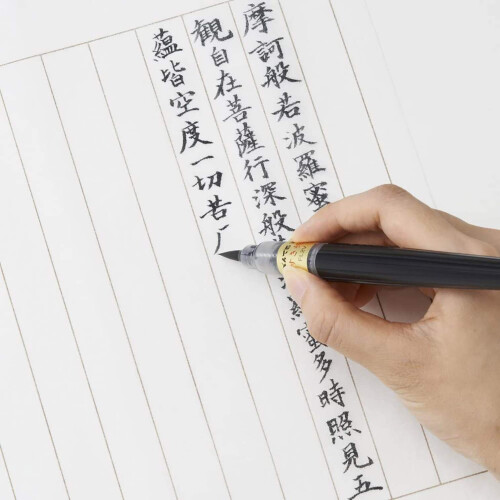 摩訶般若波羅蜜
觀自在菩薩行深般蜜多時照見五
蘊皆空度一切苦